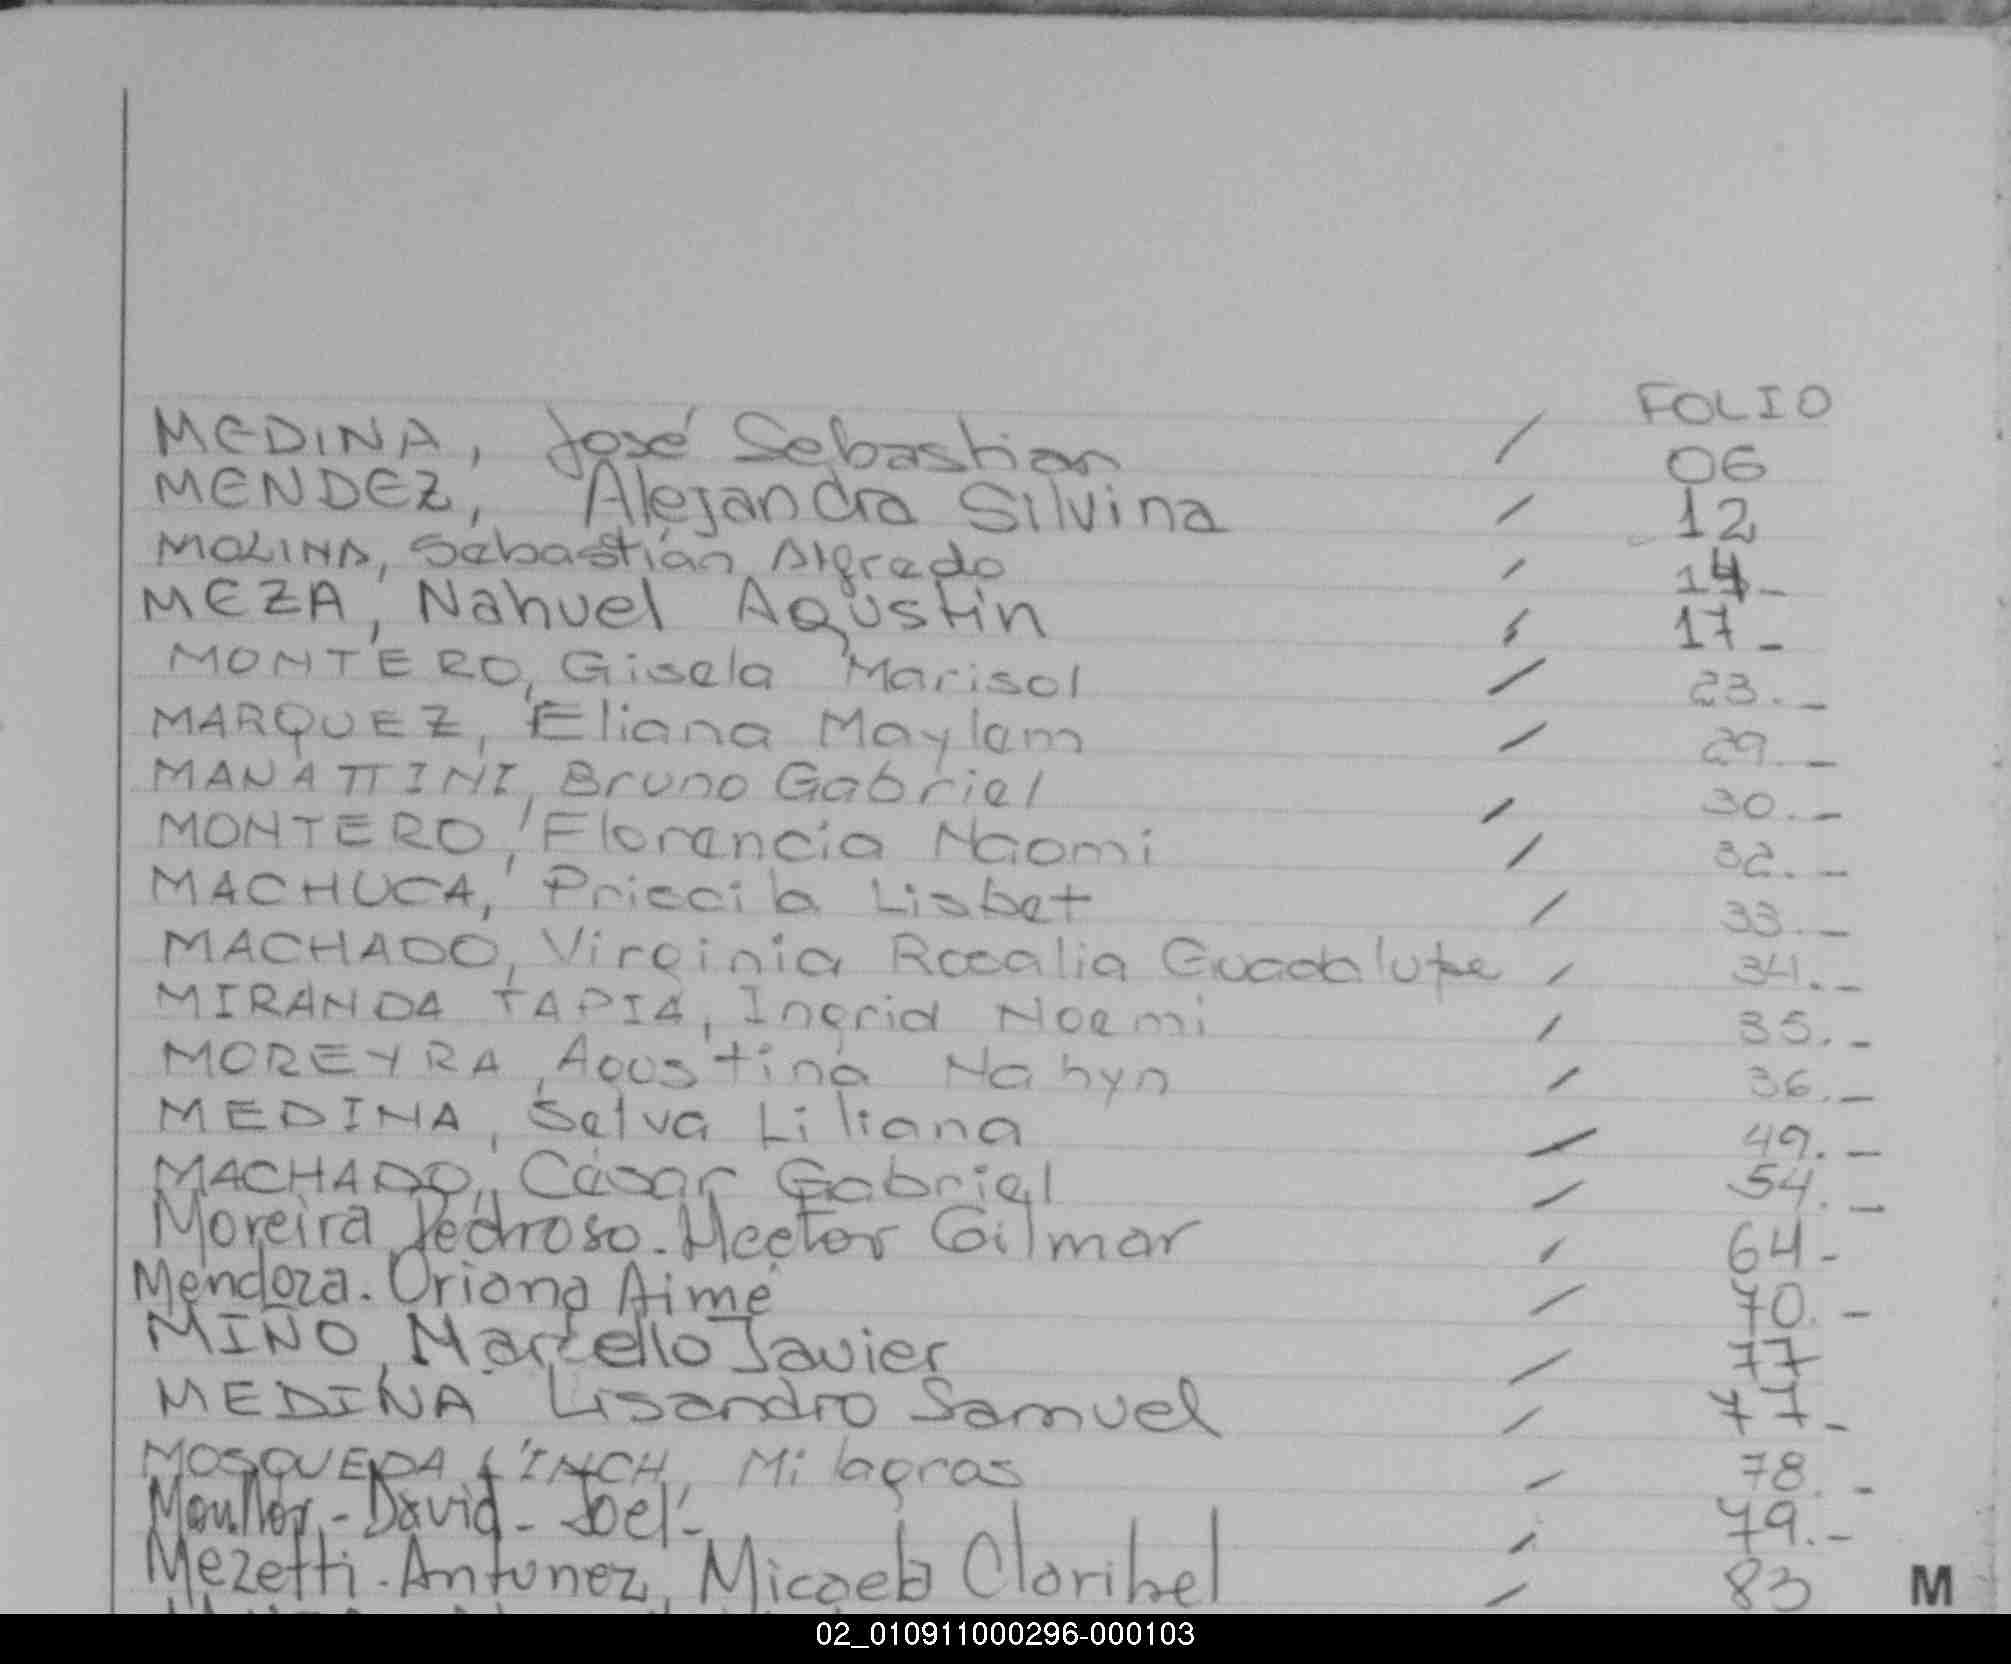 FOLIO
MEDINA, José Sebastian / 06
MENDEZ, Alejandra Silvina / 12
MOLINA, Sebastián Alfredo / 14_
MEZA, Nahuel Agustin / 17_
MONTERO, Gisela Marisol / 23._
MARQUEZ, Eliana Maylem / 29._
MANATTINI, Bruno Gabriel / 30._
MONTERO, Florencia Naomi / 32._
MACHUCA, Priscila Lisbet / 33._
MACHADO, Virginia Rosalia Guadalupe / 34._
MIRANDA TAPIA, Ingrid Noemi / 35._
MOREYRA, Agustina Nahyn / 36._
MEDINA, Selva Liliana / 49._
MACHADO, César Gabriel / 54._
Moreira Pedroso. Hector Gilmar / 64-
Mendoza. Oriana Aimé / 70.-
MIÑO, Marcello Javier / 77
MEDINA Lisandro Samuel / 77-
MOSQUEDA LINCH, Milagros / 78._
David - Joel.- / 79.-
Mezetti. Antunez, Micaela Claribel / 83
M
02_010911000296-000103